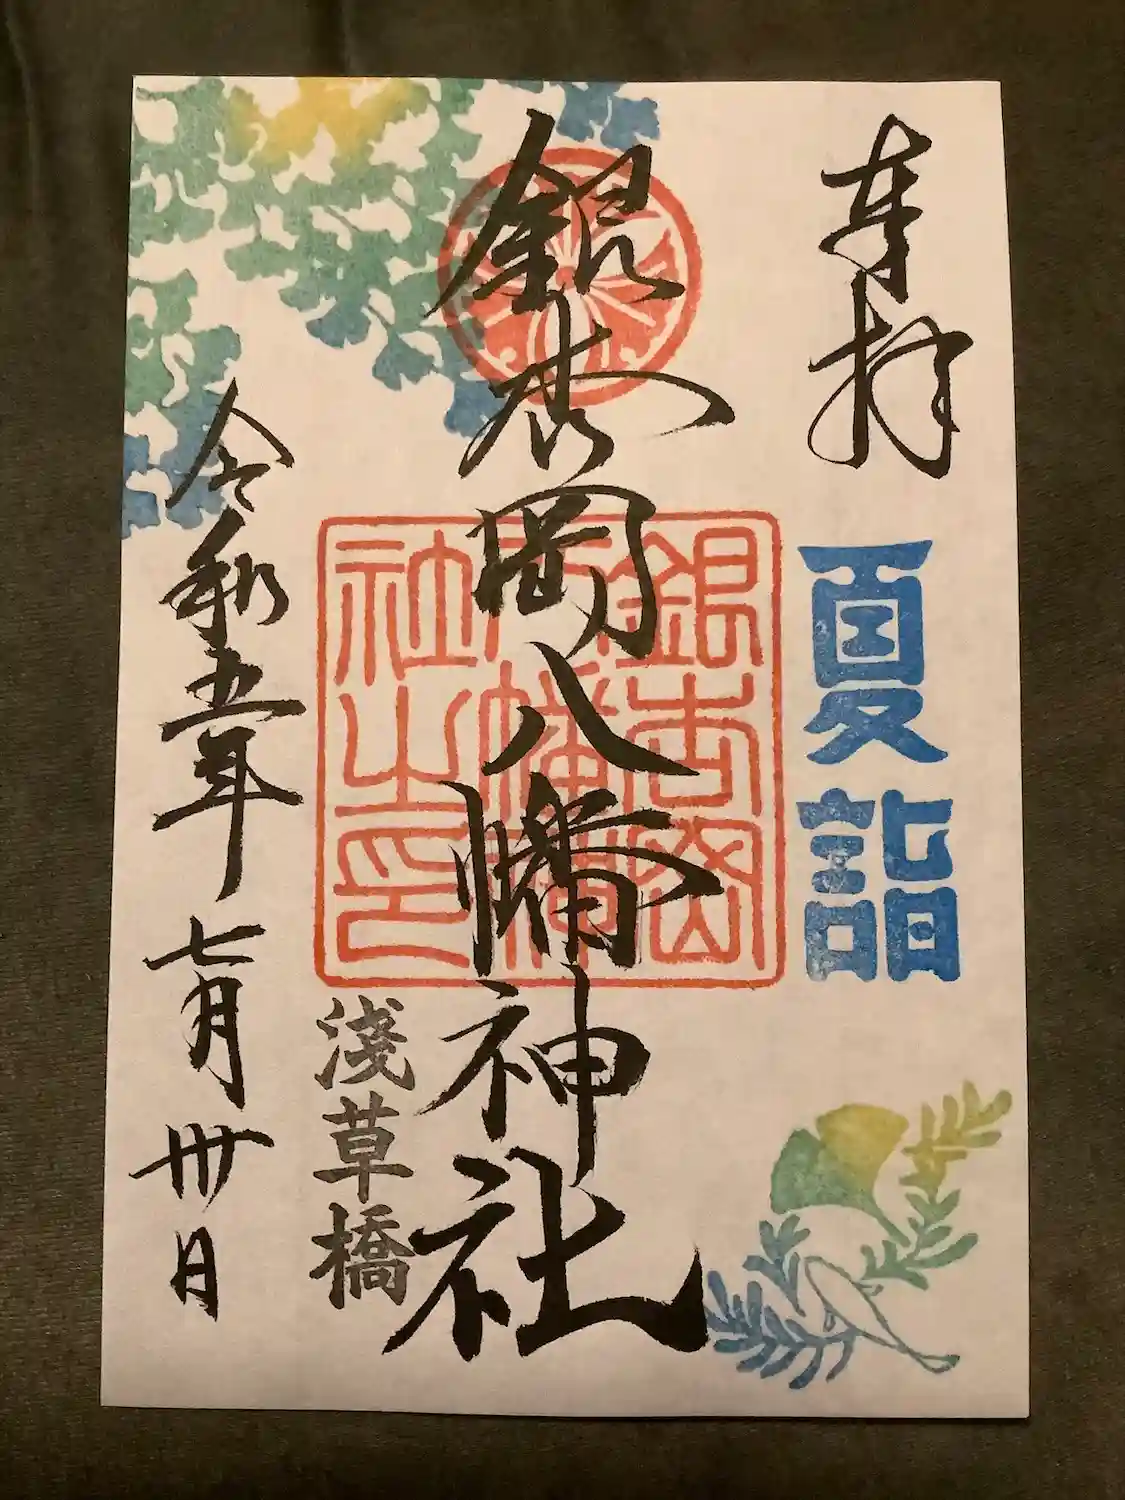 奉拝
夏詣
銀杏岡八幡神社
銀杏岡
八幡神
社之印
淺草橋
令和五年七月卅日